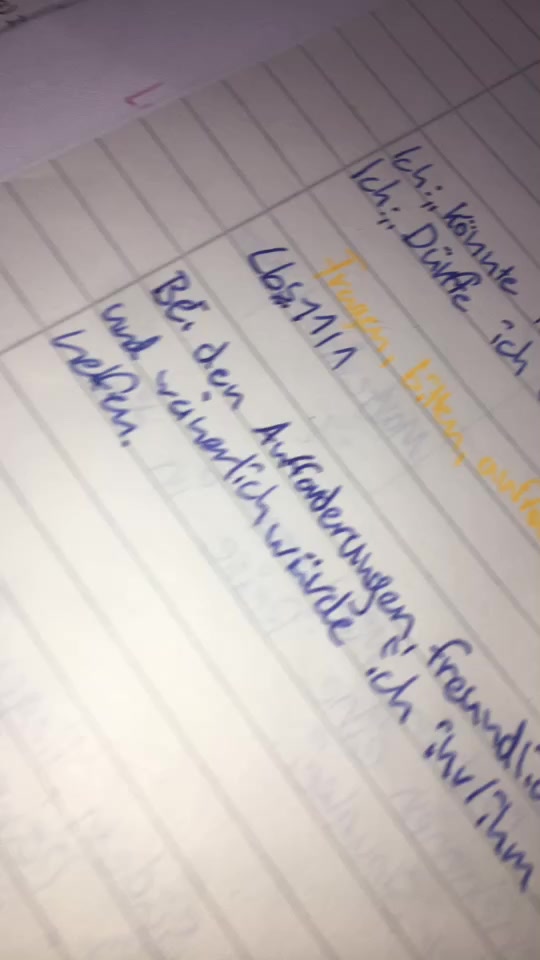 Ich: „Könnte
Ich: „Dürfte ich
Fragen, bitten, auffo
Lbs. 11/1
Bei den Aufforderungen, freundlic
und weinerlich würde ich ihr/ihm
helfen.